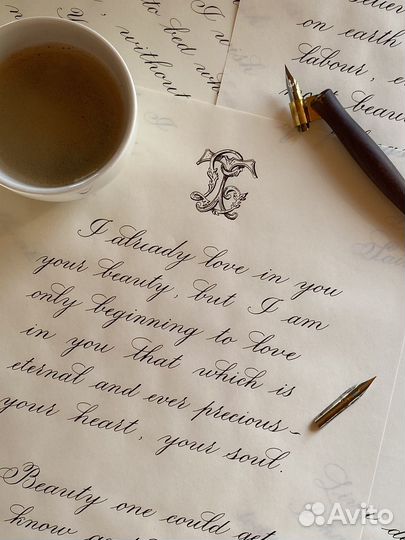 to bed wh
without
on earth
labour, e
now beau
I already love in you
your beauty, but I am
only beginning to love
in you that which is
eternal and ever precious –
your heart, your soul.
Beauty one could get
know
Avito